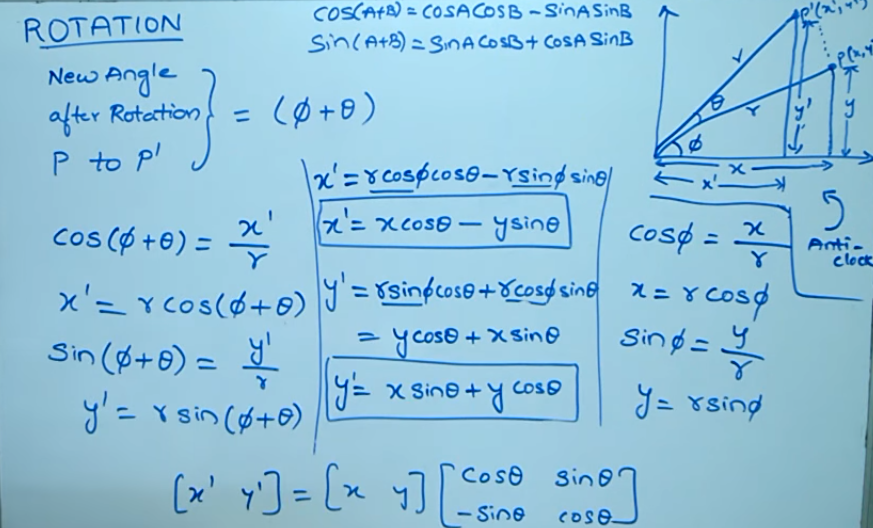 ROTATION
COS(A+B) = COSACOSB - SinASinB
Sin(A+B) = SinACosB + COSASinB
New Angle
after Rotation
P to P'
= (φ+θ)
cos(φ+θ) = x'/r
x' = r cos(φ+θ)
Sin(φ+θ) = y'/r
y' = r sin(φ+θ)
x' = r cosφcosθ - r sinφ sinθ
x' = x cosθ - y sinθ
y' = r sinφcosθ + r cosφ sinθ
= y cosθ + x sinθ
y' = x sinθ + y cosθ
P'(x', y')
P(x, y
r
θ
r
φ
y'
y
x
x'
Anti-
clock
cosφ = x/r
x = r cosφ
Sinφ = y/r
y = r sinφ
[x' y'] = [x y] [cosθ sinθ
-sinθ cosθ]